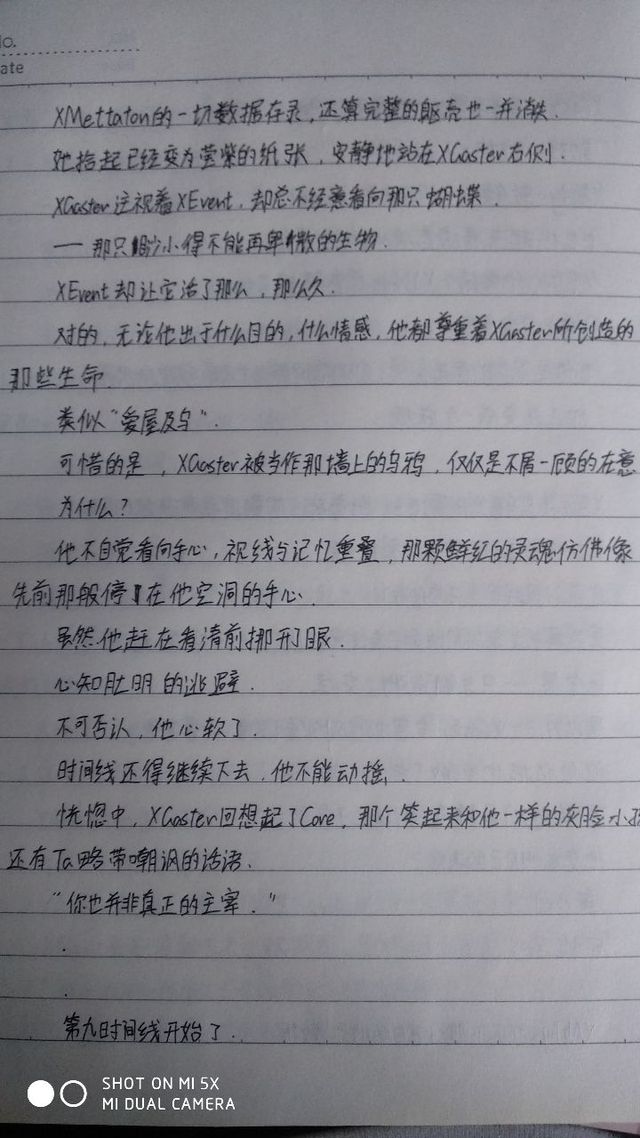 No.
ate
XMettaton的一切数据存录,还算完整的躯壳也一并消失.
她拾起已经变为萤紫的纸张,安静地站在XGaster右侧.
XGaster注视着XEvent,却总不经意看向那只蝴蝶.
— 那只渺小得不能再卑微的生物.
XEvent却让它活了那么,那么久.
对的,无论他出于什么目的,什么情感,他都尊重着XGaster所创造的
那些生命.
类似“爱屋及乌”.
可惜的是,XGaster被当作那墙上的乌鸦,仅仅是不屑一顾的在意
为什么?
他不自觉看向手心,视线与记忆重叠,那颗鲜红的灵魂仿佛像
先前那般停在他空洞的手心.
虽然他赶在看清前挪开了眼.
心知肚明的逃避.
不可否认,他心软了.
时间线还得继续下去,他不能动摇.
恍惚中,XGaster回想起了Core,那个笑起来和他一样的灰脸小孩
还有Ta略带嘲讽的话语.
“你也并非真正的主宰.”
.
.
第九时间线开始了.
SHOT ON MI 5X
MI DUAL CAMERA